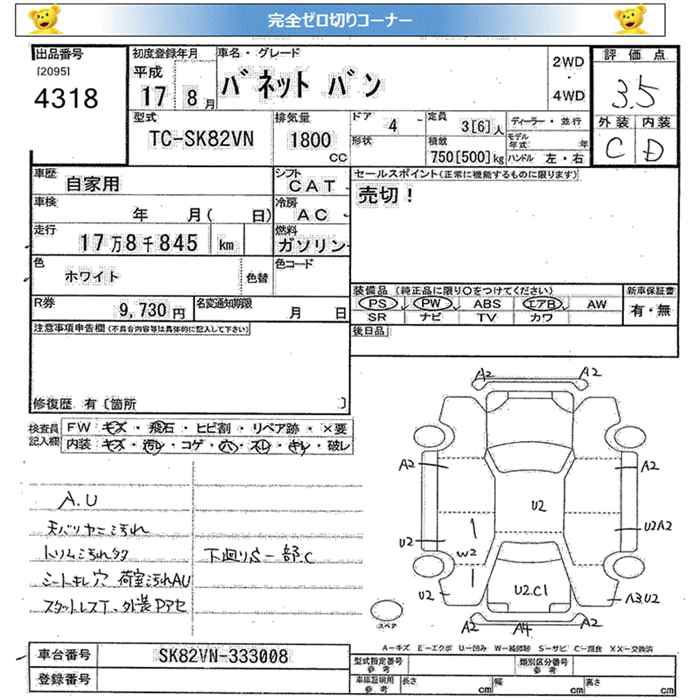 完全ゼロ切りコーナー
出品番号
[2095]
4318
初度登録年月
平成
17 8 月
車名・グレード
バネット バン
2WD
・
4WD
評価点
3.5
外装 内装
C D
型式
TC-SK82VN
排気量
1800 cc
ドア 4
形状
定員 3[6]人
積載 750[500]kg
ディーラー・並行
モデル年式 年
ハンドル 左・右
車歴
自家用
シフト
CAT
セールスポイント(正常に機能するものに限ります)
売切!
車検
年 月( 日)
冷房
AC
走行
17万8千845 km
燃料
ガソリン
色
ホワイト
色替
色コード
装備品(純正品に限り○をつけてください)
PS PW ABS エアB AW
SR ナビ TV カワ
新車保証書
有・無
R券
9,730円
名変通知期限
月 日
後日品
注意事項申告欄(不具合内容等は具体的に記入して下さい)
修復歴 有〔箇所 〕
検査員
記入欄
FW キズ・飛石・ヒビ割・リペア跡・×要
内装 キズ・汚レ・コゲ・穴・スレ・キレ・破レ
A.U
天バリヤニ汚れ
トリム汚れタタ
下廻りS一部.C
シートキレ穴 荷室汚れAU
スタットレスT、外装Pアセ
A2 A2
A2 A2
U2
U2 U2A2
W2
U2 U2C1 A3.U2
A2 A4 A2
スペア
A-キズ E-エクボ U-凹み W-補修跡 S-サビ C-腐食 XX-交換済
車台番号
SK82VN-333008
登録番号
型式指定番号
参考
類別区分番号
参考
車庫証明用
参考
長さ cm 幅 cm 高さ cm